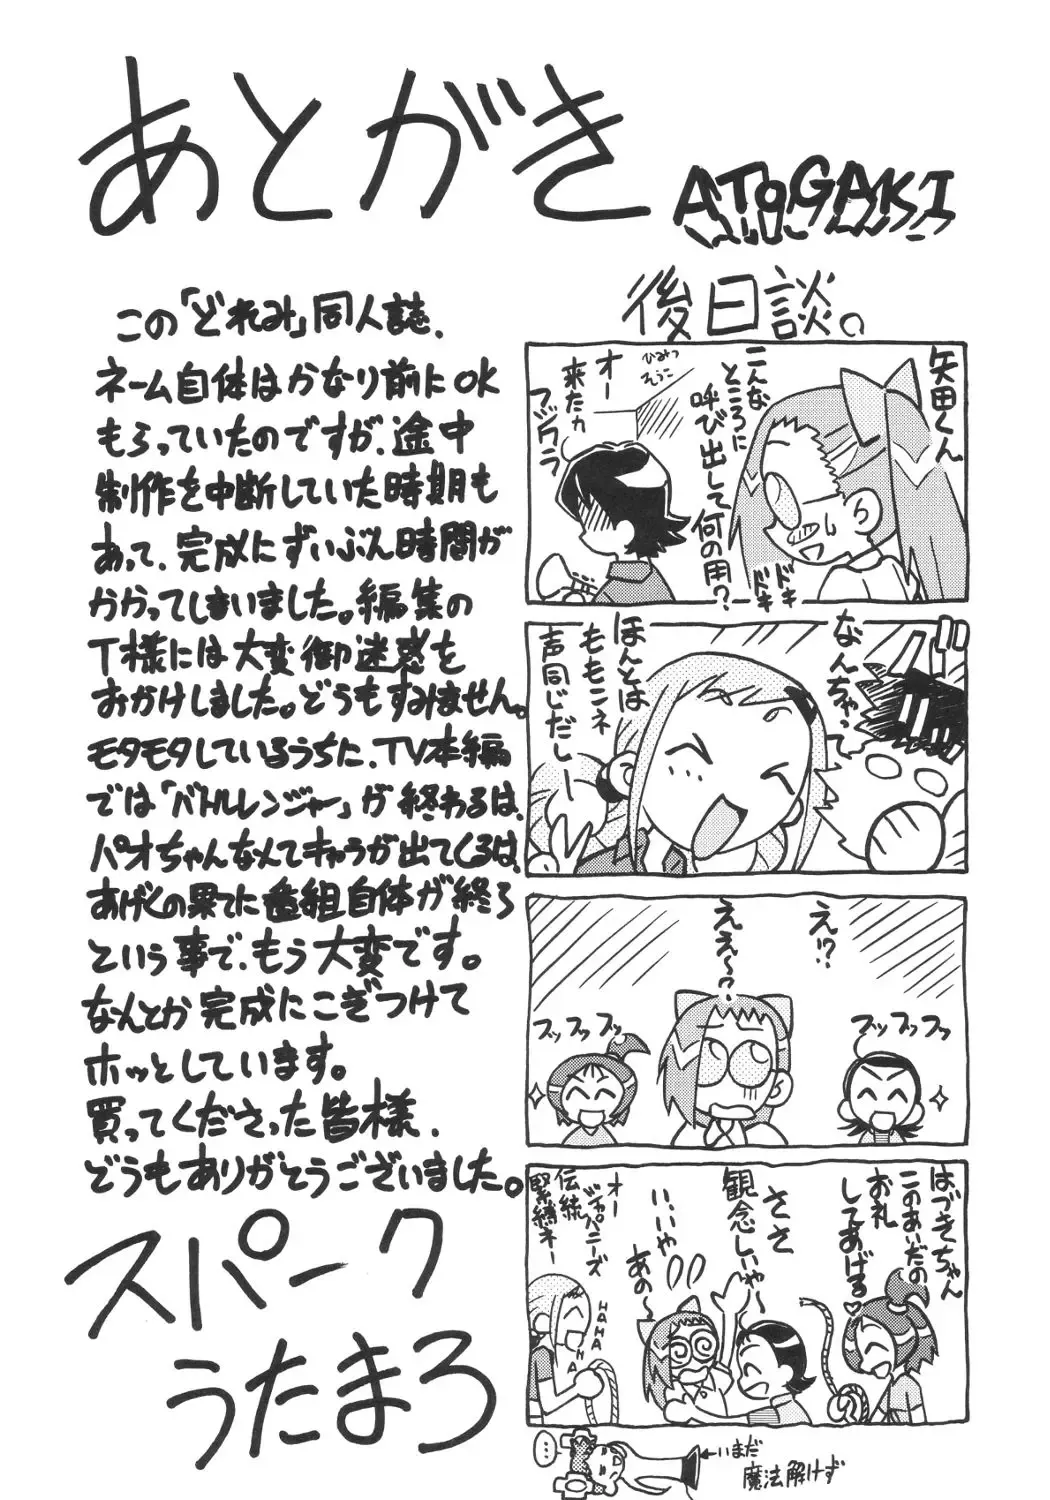 あとがき
ATOGAKI
この「どれみ」同人誌、
ネーム自体はかなり前にOK
もらっていたのですが、途中
制作を中断していた時期も
あって、完成にずいぶん時間が
かかってしまいました。編集の
T様には大変御迷惑を
おかけしました。どうもすみません。
モタモタしているうちに、TV本編
では「バトルレンジャー」が終わるは、
パオちゃんなんてキャラが出てくるは、
あげくの果てに番組自体が終る
という事で、もう大変です。
なんとか完成にこぎつけて
ホッとしています。
買ってくださった皆様、
どうもありがとうございました。
スパーク
うたまろ
後日談。
矢田くん
こんな
ところに
呼び出して何の用?
ドキ
ドキ
ひみつ
そうこ
オー
来たカ
なんちゃっ
ほんとは
ももこンネ
声同じだしー
え!?
ええ〜っ?
フッフッフッ
フッフッフッ
はづきちゃん
このあいだの
お礼
してあげる
ささ
観念しいや〜
いいや
あの〜
オー
ジャパニーズ
伝統
緊縛ネー
HAHA
HAHA
…
←いまだ
魔法解けず